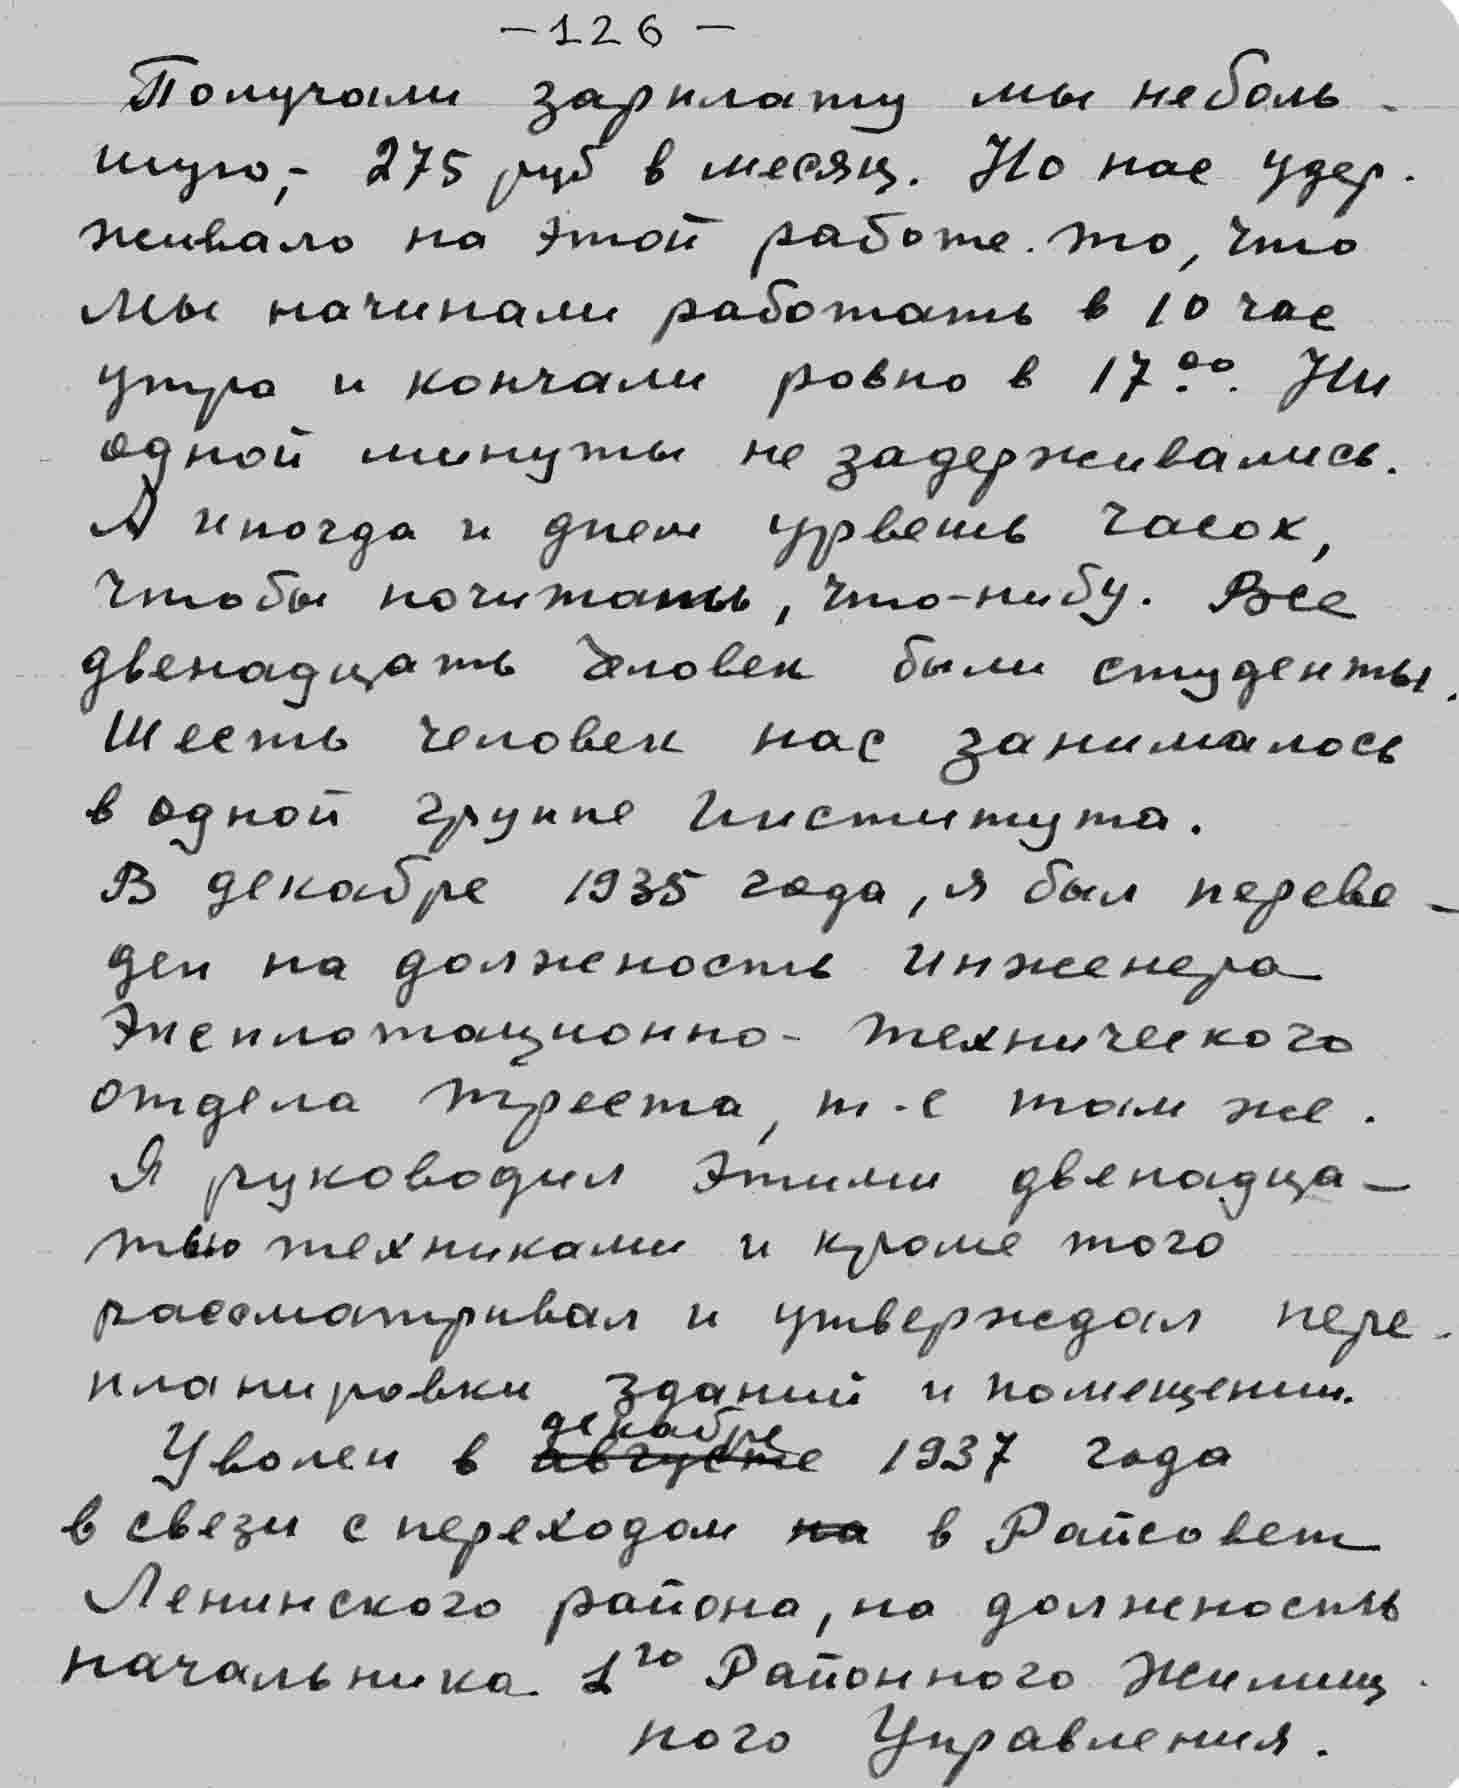 -126-
Получали зарплату мы неболь-
шую,- 275 руб в месяц. Но нас удер-
живало на этой работе то, что
мы начинали работать в 10 час
утра и кончали ровно в 17 00. Ни
одной минуты не задерживались.
А иногда и днем урвешь часок,
чтобы почитать, что-нибу. Все
двенадцать человек были студенты.
Шесть человек нас занималось
в одной группе Института.
В декабре 1935 года, я был переве-
ден на должность инженера
Эксплотационно-технического
отдела треста, т-е там же.
Я руководил этими двенадца-
тью техниками и кроме того
рассматривал и утверждал пере-
планировки зданий и помещении.
декабре
Уволен в августе 1937 года
в свези с переходом на в Райсовет
Ленинского района, на должность
начальника 1го Районного Жилищ-
ного Управления.